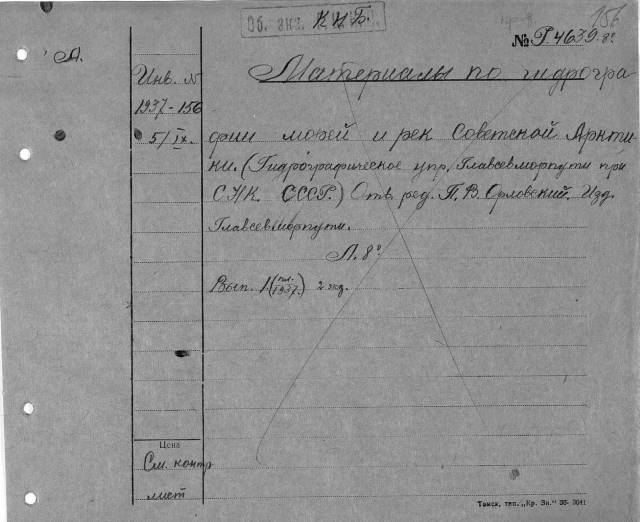 Об. знк. К.И.Б.
156
№ Р.4639.8º
Л.
Инв. N
1937-156
5/IX.
Материалы по гидрогра
фии морей и рек Советской Аркти-
ки. (Гидрографическое упр. Главсевморпути при
СНК СССР.) Отв. ред. П. В. Орловский. Изд.
Главсевморпути.
Л. 8º
Вып. 1. (1937.) 2 экз.
Цена
См. контр
лист
Томск, тип. „Кр. Зн.“ 36- 3641